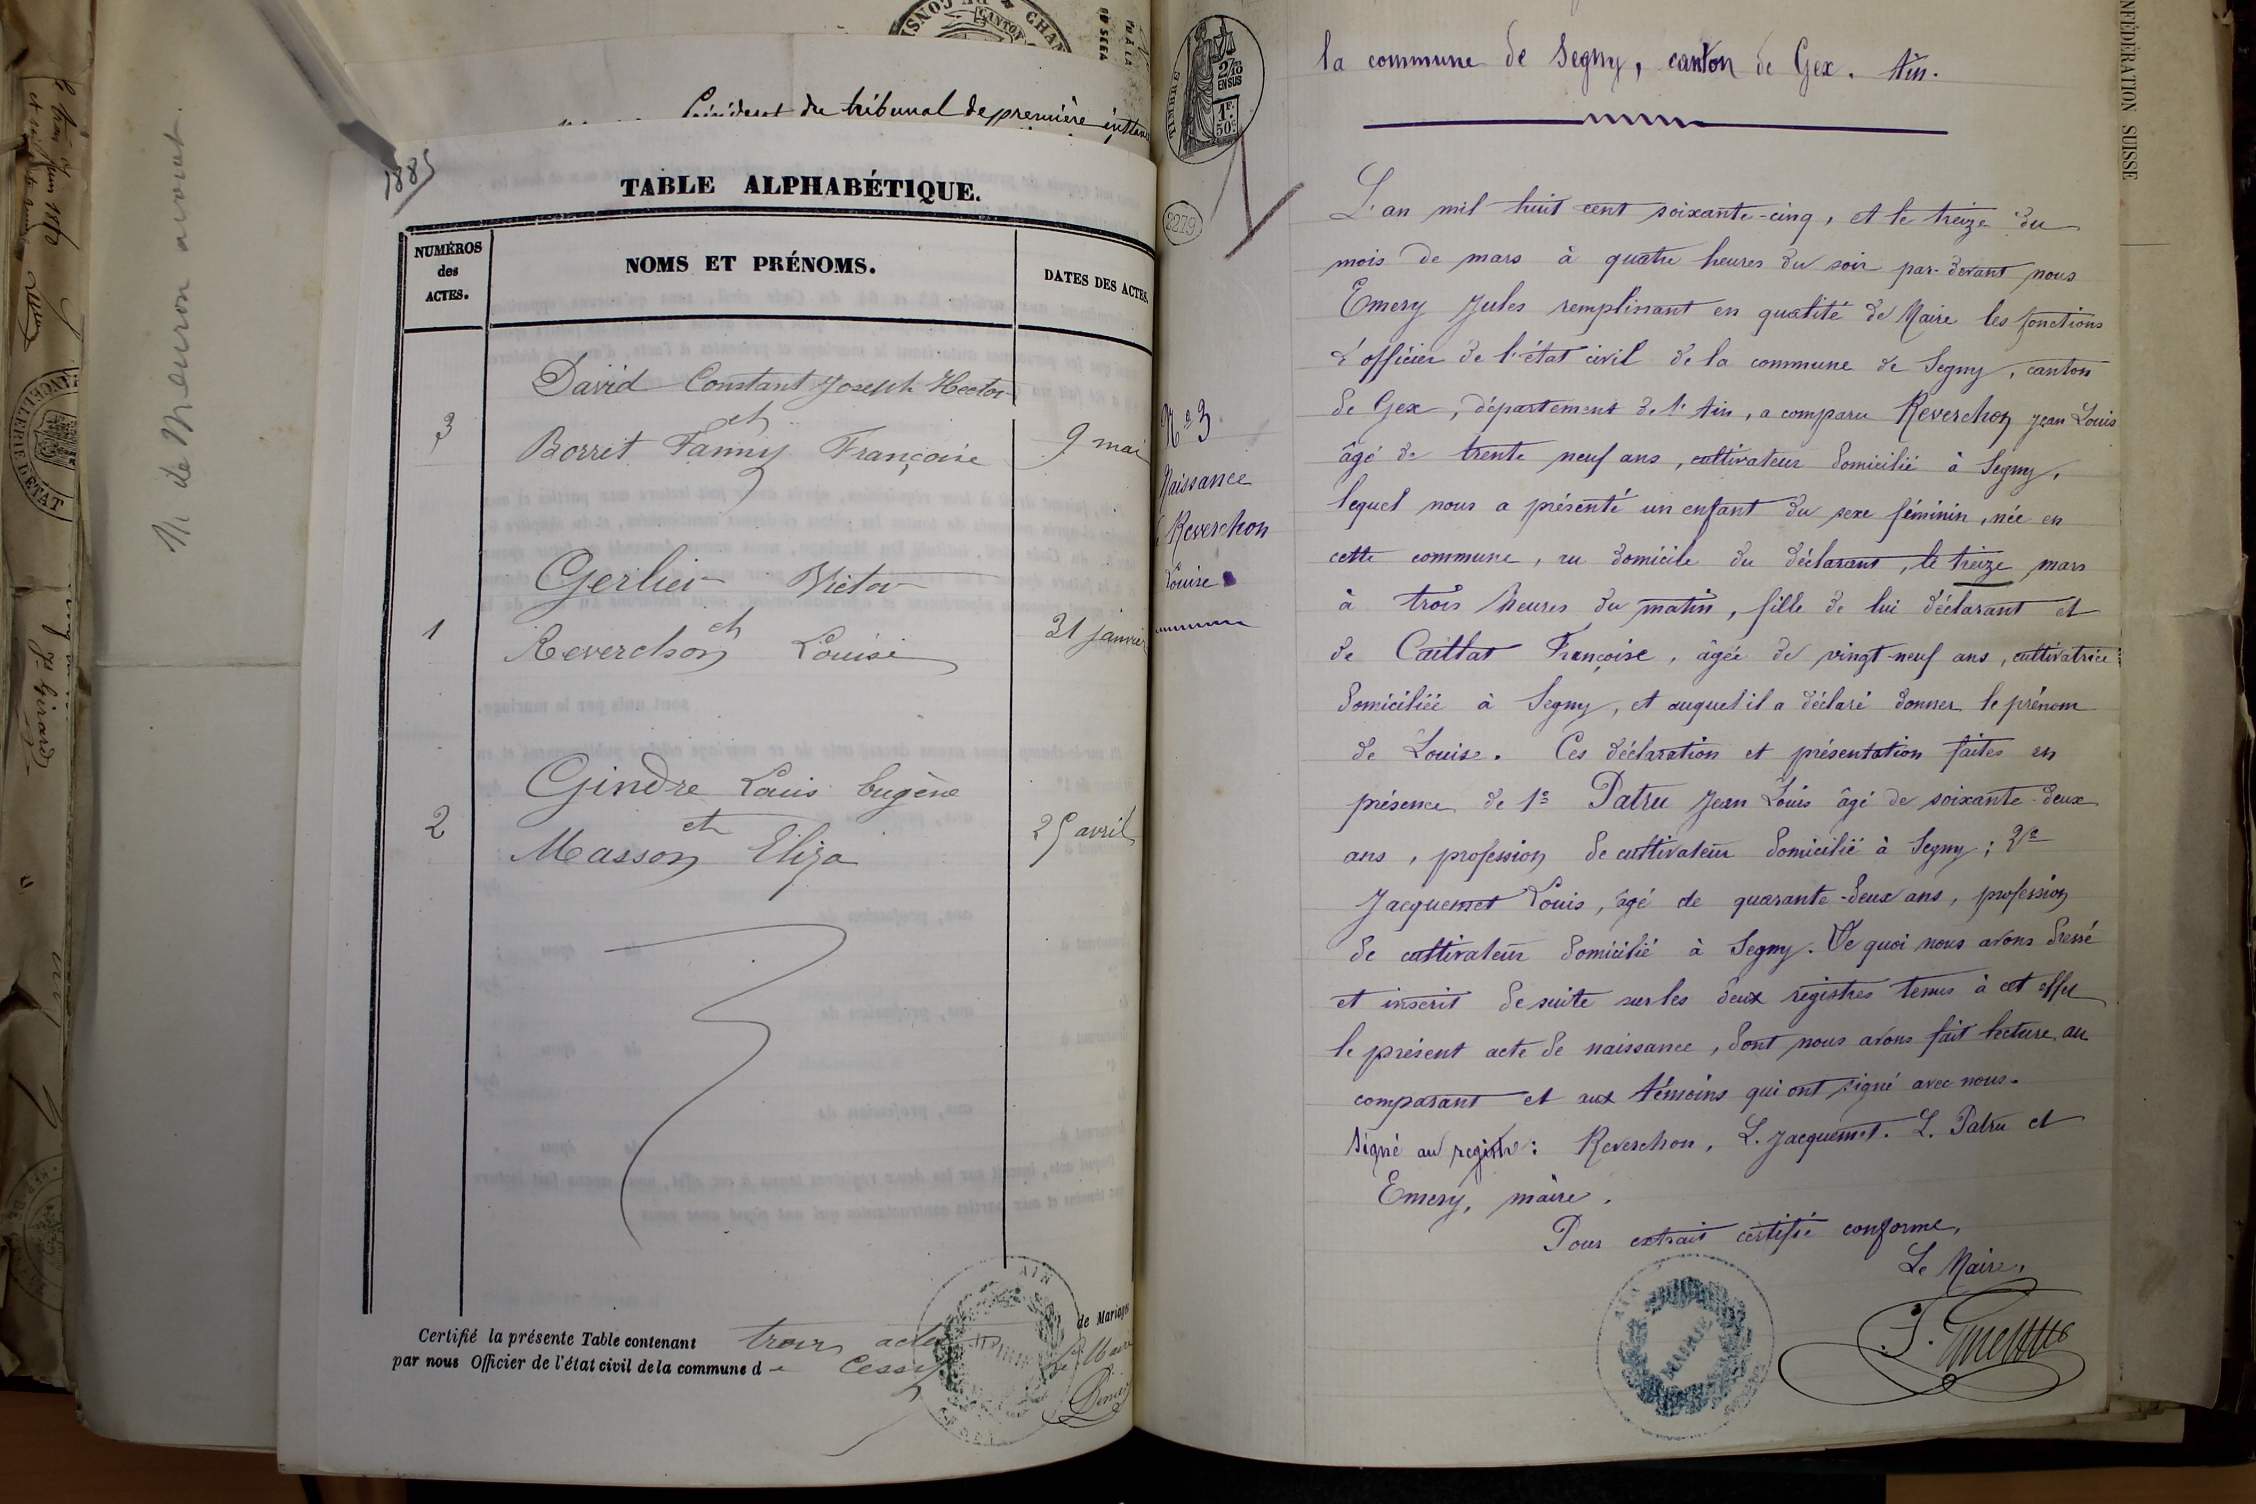 Président du tribunal de première instance
1885
TABLE ALPHABÉTIQUE.
NUMÉROS
des
ACTES.
NOMS ET PRÉNOMS.
DATES DES ACTES.
David Constant Joseph Hector
et
3 Borret Fanny Françoise 9 mai
Gerlier Victor
et
1 Reverchon Louise 31 janvier
Gindre Louis Eugène
et
2 Masson Eliza 25 avril
Certifié la présente Table contenant trois actes de Mariages
par nous Officier de l'état civil de la commune de Cessy le Maire
AIN
MAIRIE
M. de Meuron avocat.
CHANCELLERIE D'ETAT
TIMBRE
2/10
EN SUS
1F.
50c
2279
la commune de Segny, canton de Gex. Ain.
L'an mil huit cent soixante-cinq, et le treize du
mois de mars à quatre heures du soir par-devant nous
Emery Jules remplissant en qualité de Maire les fonctions
d'officier de l'état civil de la commune de Segny, canton
de Gex, département de l'Ain, a comparu Reverchon Jean Louis
âgé de trente neuf ans, cultivateur domicilié à Segny,
lequel nous a présenté un enfant du sexe féminin, née en
cette commune, au domicile du déclarant, le treize mars
à trois heures du matin, fille de lui déclarant et
de Caillat Françoise, âgée de vingt-neuf ans, cultivatrice
domiciliée à Segny, et auquel il a déclaré donner le prénom
de Louise. Ces déclaration et présentation faites en
présence de 1º Patru Jean Louis âgé de soixante-deux
ans, profession de cultivateur domicilié à Segny; 2º
Jacquemet Louis, âgé de quarante-deux ans, profession
de cultivateur domicilié à Segny. De quoi nous avons dressé
et inscrit de suite sur les deux registres tenus à cet effet
le présent acte de naissance, dont nous avons fait lecture au
comparant et aux témoins qui ont signé avec nous.
Signé au registre: Reverchon, L. Jacquemet. L. Patru et
Emery, maire.
Pour extrait certifié conforme,
Le Maire,
Nº 3
Naissance
de Reverchon
Louise
AIN
MAIRIE
CONFÉDÉRATION SUISSE